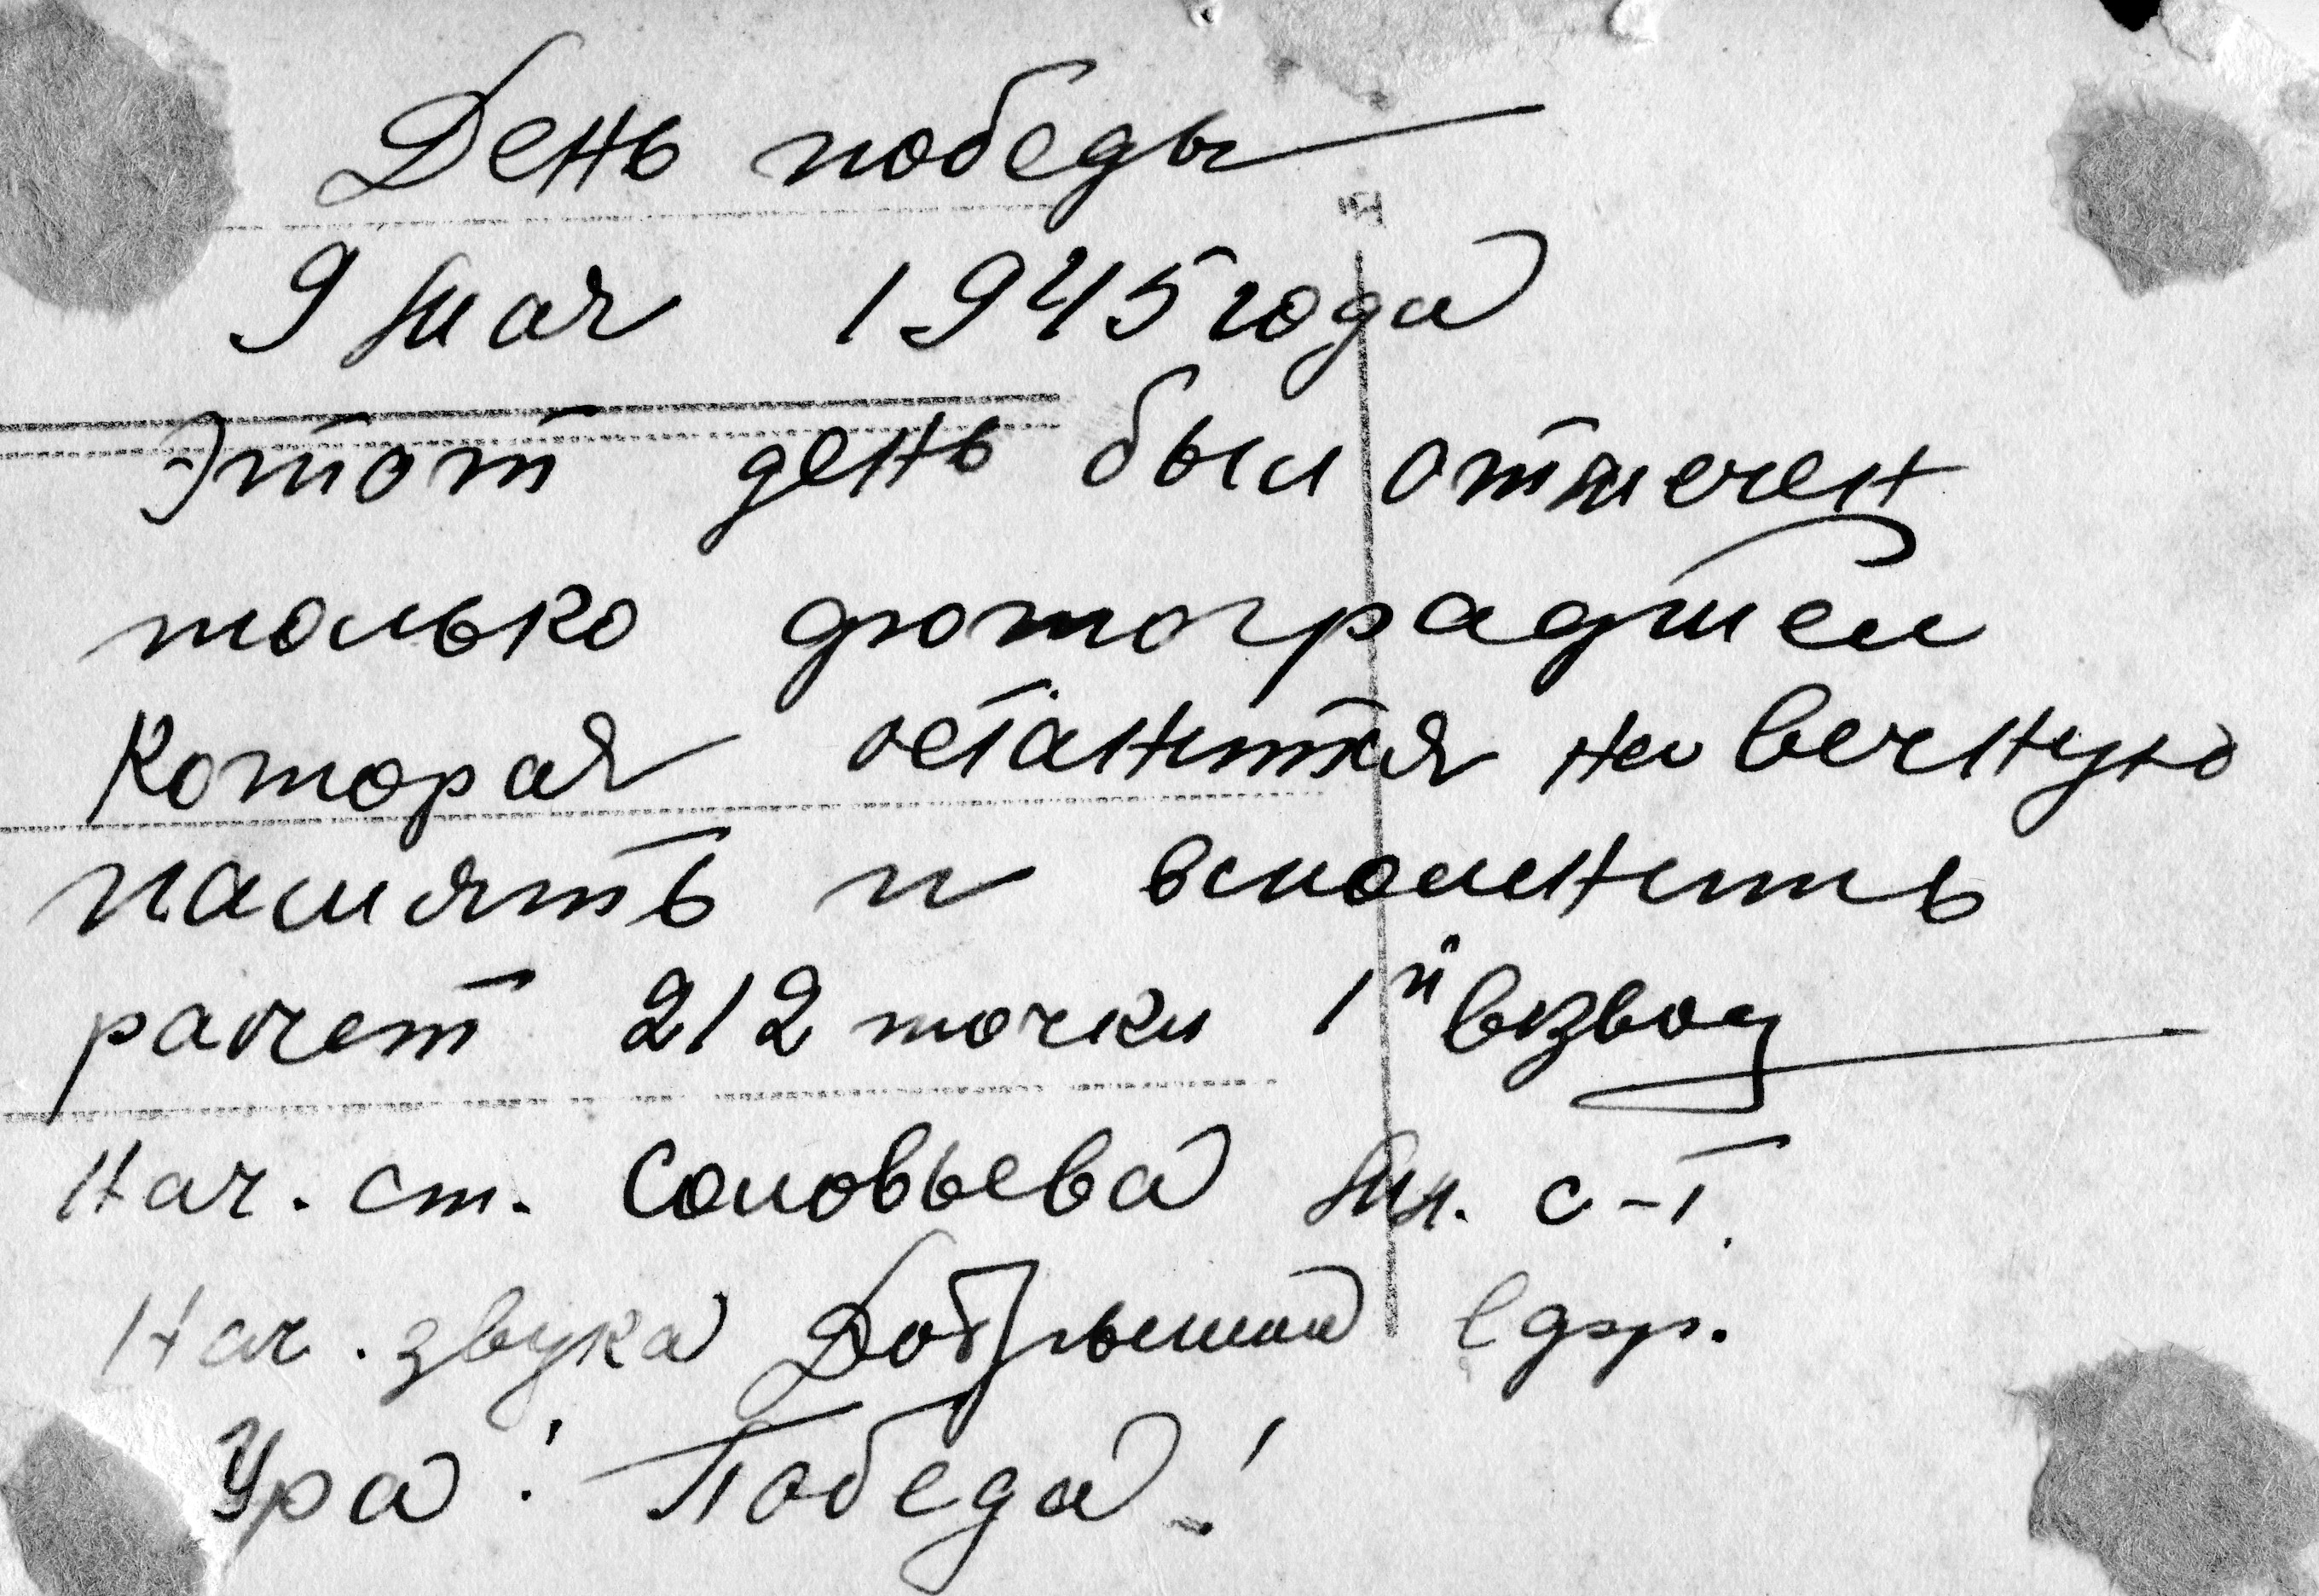 День победы
9 мая 1945 года
Этот день был отмечен
только фотографией
Которая останится на вечную
память и вспомнить
расчет 212 точки 1й взвод
Нач. ст. Соловьева мл. с-т.
Нач. звука ефр.
Ура! Победа!